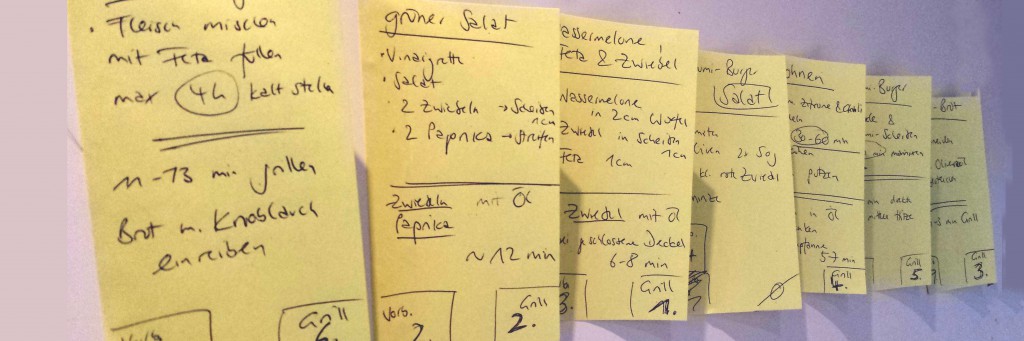 • Fleisch mischen
mit Feta füllen
max 4h kalt stellen
11-13 min grillen
Brot m. Knoblauch
einreiben
Vorb.
Grill
6.
grüner Salat
• Vinaigrette
• Salat
• 2 Zwiebeln → Scheiben
1cm
• 2 Paprika → Streifen
Zwiebeln mit Öl
Paprika
~12 min
Vorb.
2.
Grill
2.
assermelone,
Feta & Zwiebel
Wassermelone
in 2cm Würfel
Zwiebel in Scheiben
1cm
Feta 1cm
Zwiebel mit Öl
ei geschlossene Deckel
6-8 min
3.
Grill
1.
umi-Burger
(Salat)
iven 2x 50g
kl. rote Zwiebel
ohnen
30-60 min
putzen
in Öl
pfanne
5-7 min
Grill
4.
i-Burger
de &
mi-Scheiben
min marinieren
Grill
5.
i-Brot
Olivenöl
min Grill
Grill
3.